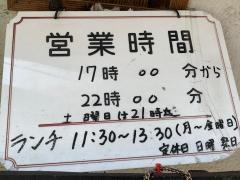 営業時間
17時00分から
22時00分
土曜日は21時迄
ランチ 11:30〜13:30(月〜金曜日)
定休日 日曜 祭日